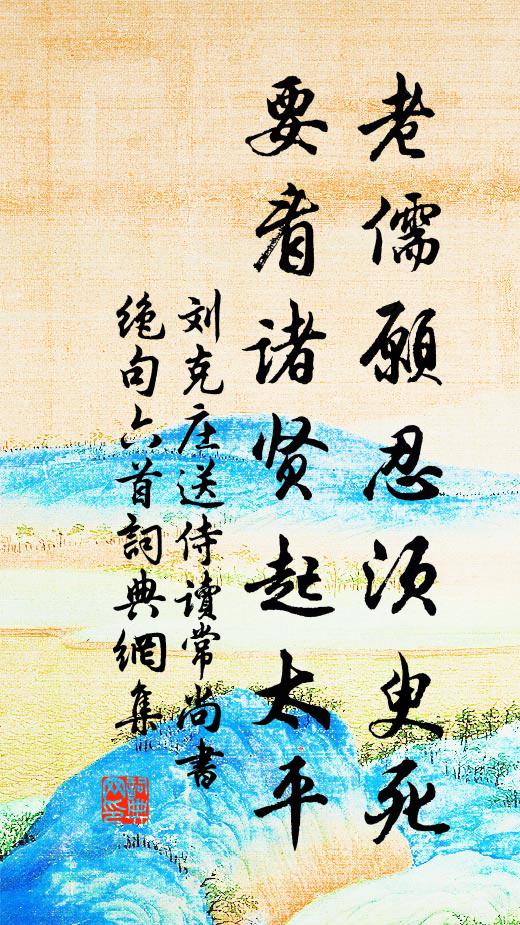 老儒愿忍须臾死
要看诸贤起太平
刘克庄送侍讀常尚書
绝句六首詞典網集